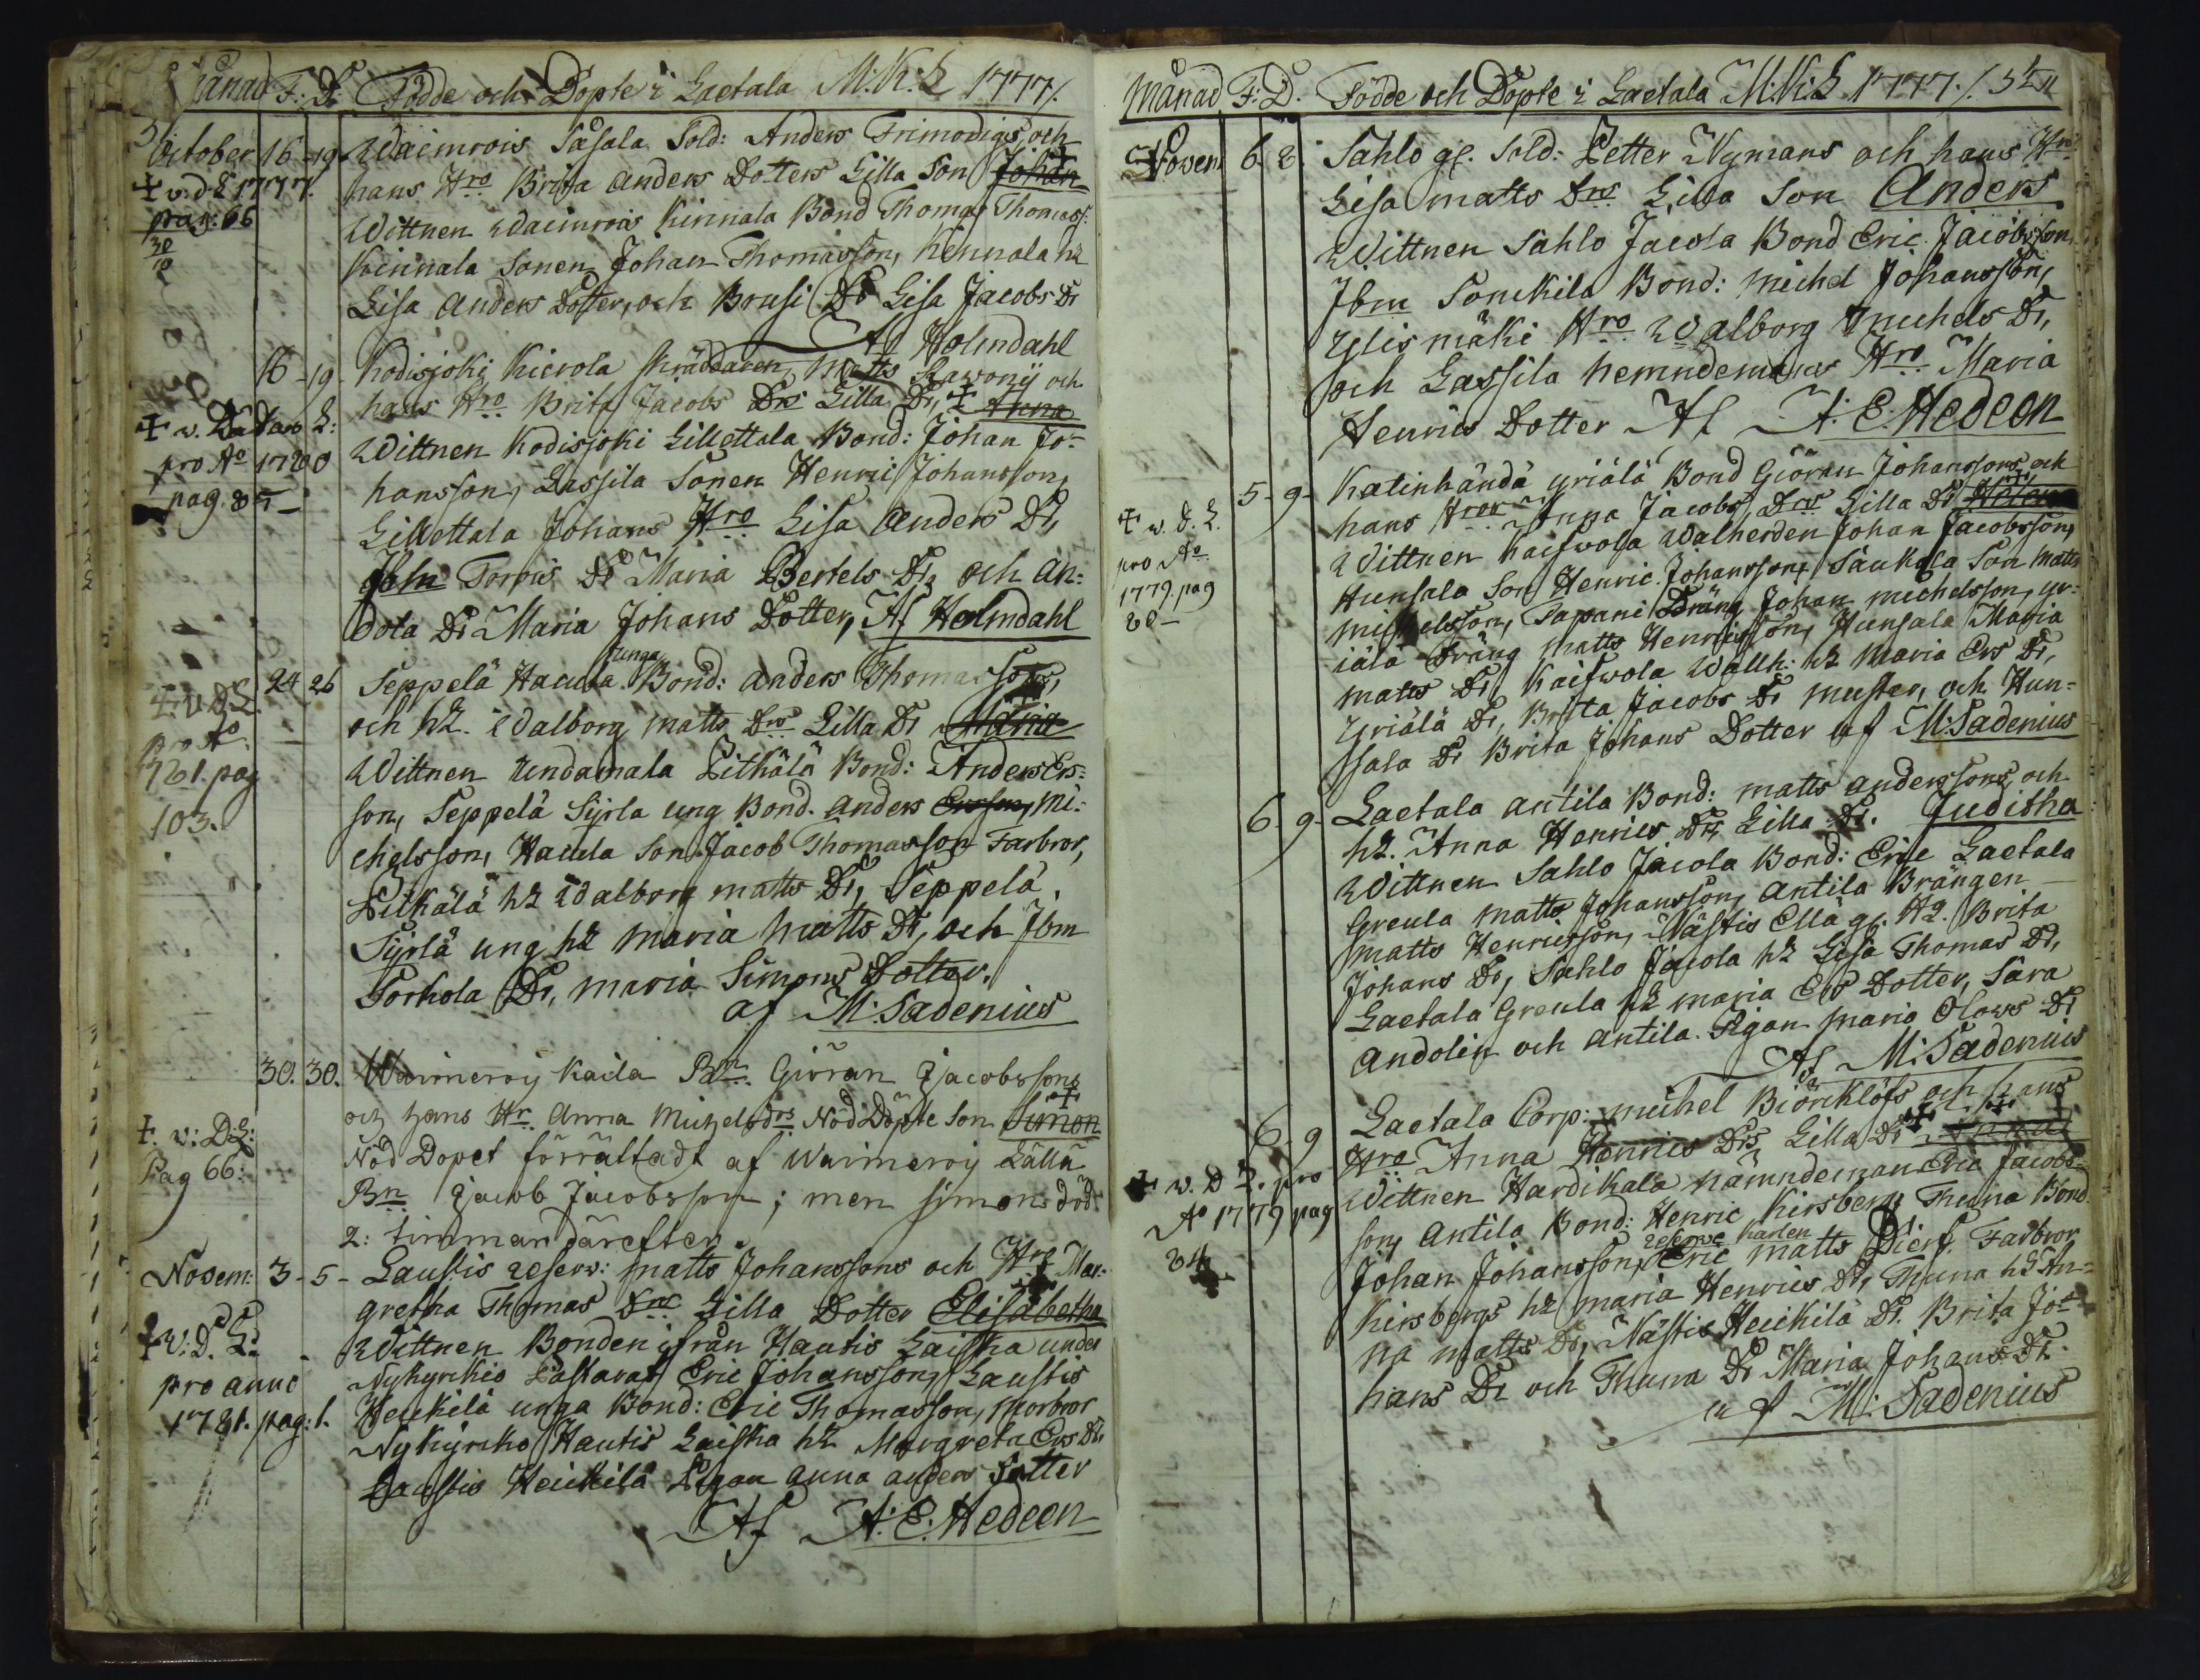 Månad F. D. Födde och Döpte i Laetala M:K:L 1777/.
October 16-19 Waimrois Såsala Sold: Anders Frimodigs och
✝ v: d: L 1777. hans Hro Brita Anders Dotters Lilla Son Johan
pag: 66 Wittnen Waimrois Kinnala Bond Thomas Thomass:
30/10 Kinnala Sonen Johan Thomasson, Kennala hz
Lisa Anders Dotter, och Bousi Dr Lisa Jacobs Dr
Af Holmdahl
16-19- Kodisjoki Kierola skräddaren, Matts och
hans Hro Brita Jacobs Drs Lilla Dr, ✝ Anna
✝ v. L: Wittnen Kodisjoki Lillettala Bond: Johan Jo-
pro Ao 1780 hansson, Lassila Sonen Henric Johansson,
pag. 85- Lillettala Johans Hro Lisa Anders Dr,
Ibm Torpis Dr Maria Bertels Dr, och An-
dola Dr Maria Johans Dotter, Af Holmdahl
24 26 Seppelä Hacula unga Bond: Anders Thomassons,
✝: v: D: L och hz. Walborg Matts Drs Lilla Dr Maria
pro Ao Wittnen Undamala Pitkälä Bond: Anders Ers-
1781. pag son, Seppelä Sÿrla ung Bond. Anders Ersson, Mi-
103. chelsson, Hacula Son Jacob Thomasson Farbror,
Pitkälä hz Walborg Matts Dr, Seppelä
Sÿrlä ung hz Maria Matts Dr, och Ibm
Torkola Dr, Maria Simons Dotter.
af M: Sadenius
30. 30. Waimeroj Kaila Bn Giöran Jacobssons
och hans Hr. Anna Michels drs Nöd Döpte Son Simon
✝. v: D: L: Nöd Dopet förrättadt af Waimeroj Lällä
Pag 66: Bn Jacob Jacobsson; men Simon död
2: timmar därefter.
Novem: 3-5- Laustis reserv: Matts Johanssons och Hro Mar-
gretha Thomas Drs Lilla Dotter Elisabetha
✝ v: D. L: Wittnen Bonden ifrån Hautis Laiska under
pro anno Nykyrkio Pastorat Eric Johansson, Laustis
1781. pag: 1. Heickilä unga Bond: Eric Thomasson, Morbror
Nykyrko Hautis Laiska hz Margreta Ers Dr.
Laustis Heickilä Pigan Anna Anders Dotter
Af A: E: Hedeen
Månad F: D. Födde och Döpte i Laetala M:K:L 1777./.
Novem 6 8. Sahlo gl. Sold: Petter Nymans och hans Hro
Lisa Matts Drs Lilla Son Anders
Wittnen Sahlo Jacola Bond Eric Jacobsson,
Ibm Sonckila Bond: Michel Johansson,
Ylis mäki Hro Walborg Michels Dr,
och Lassila Hro Maria
Henrics Dotter Af A: E. Hedeen
5-9- Katinhändä Yriälä Bond Giöran Johanssons och
✝ v. D. L. hans Hror Anna Jacobs Drs Lilla Dr
pro Ao Wittnen Kaifwola Johan Jacobsson,
1779. pag Hunsala Son Henric Johansson, Saukola Son Matts
80- Michelsson, Tapani Dräng Johan Michelsson, Yr-
iälä Dräng Matts Henricsson, Hunsala Maria
Matts Dr, Kaifwola Wallh: hz Maria Ers Dr,
Yriälä Dr, Brita Jacobs Dr och Hun-
sala Dr Brita Johans Dotter af M: Sadenius
6-9- Laetala Antila Bond: Matts Anderssons och
hz. Anna Henrics Drs, Lilla Dr. Juditha
Wittnen Sahlo Jacola Bond: Eric Laetala
Greula Matts Johansson, Antila Drängen
Matts Henricsson, Nästis Ellä gl. Hz. Brita
Johans Dr, Sahlo Jacola hz Lisa Thomas Dr,
Laetala Greula hz Maria Ers Dotter, Sara
Andolin och Antila. Pigan Maria Olows Dr
Af M: Sadenius
Laetala Corp: Michel Biörcklöfs och hans
6-9 Hro Anna Henrics Drs Lilla Dr ✝ Anna
✝ v. D. L. pro Wittnen Hardikala nämndeman Eric Jacobs-
Ao 1779 pag son, Antila Bond: Henric Kirsberg, Thuna Bond
84 Johan Johansson, reserve karlen Eric Matts Dierf. Farbror
Kirsbergs hz Maria Henrics Dr, Thuna hz An-
na Matts Dr, Nästis Heickilä Dr. Brita Jo-
hans Dr och Thuna Dr Maria Johans Dr.
af M: Sadenius